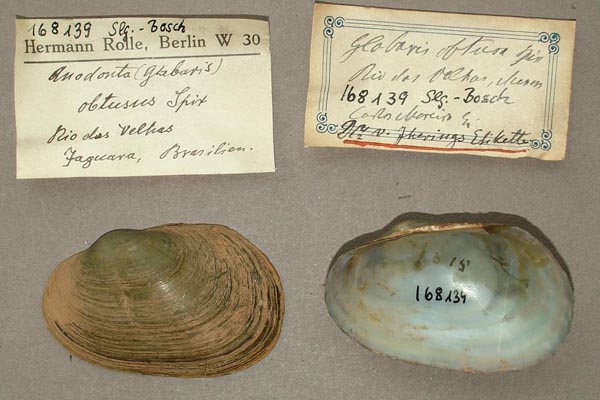 168139 Slg.-Bosch
Hermann Rolle, Berlin W 30
Anodonta (Glabaris)
obtusus Spix
Rio das Velhas
Jaguara, Brasilien.
Glabaris obtusa Spix
Rio das Velhas,
168139 Slg.-Bosch
Carlos Moreira
Dr. v. Jherings Etikette
168139